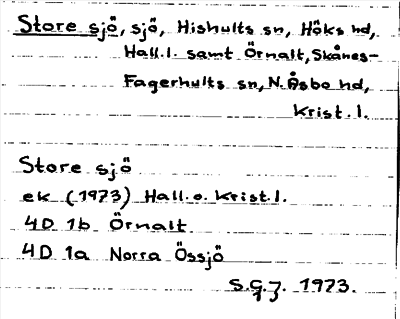 Store sjö, sjö, Hishults sn, Höks hd,
Hall.l. samt Örnalt, Skånes-
Fagerhults sn, N. Åsbo hd,
Krist.l.
Store sjö
ek (1973) Hall.o. Krist.l.
4D 1b Örnalt
4D 1a Norra Össjö
S.G.J. 1973.